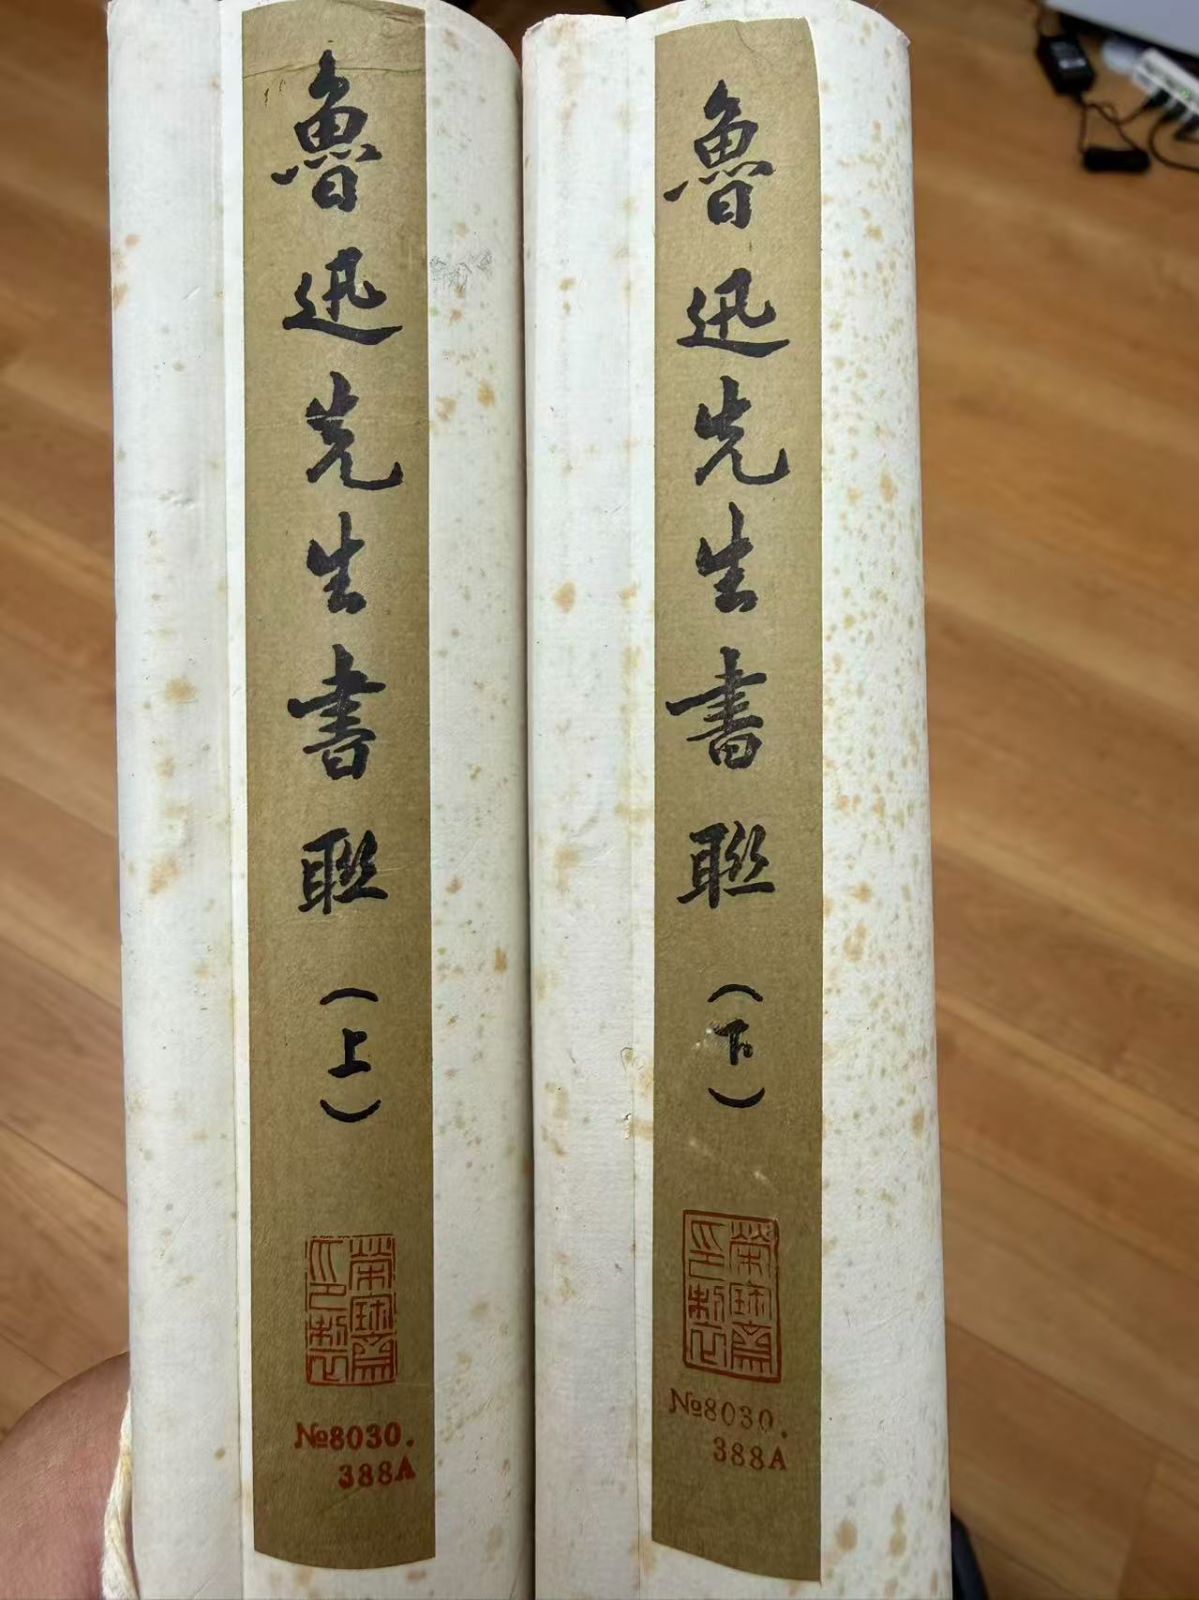 魯迅先生書聯(上)
榮寶齋
印制
№8030.
388A
魯迅先生書聯(下)
榮寶齋
印制
№8030.
388A